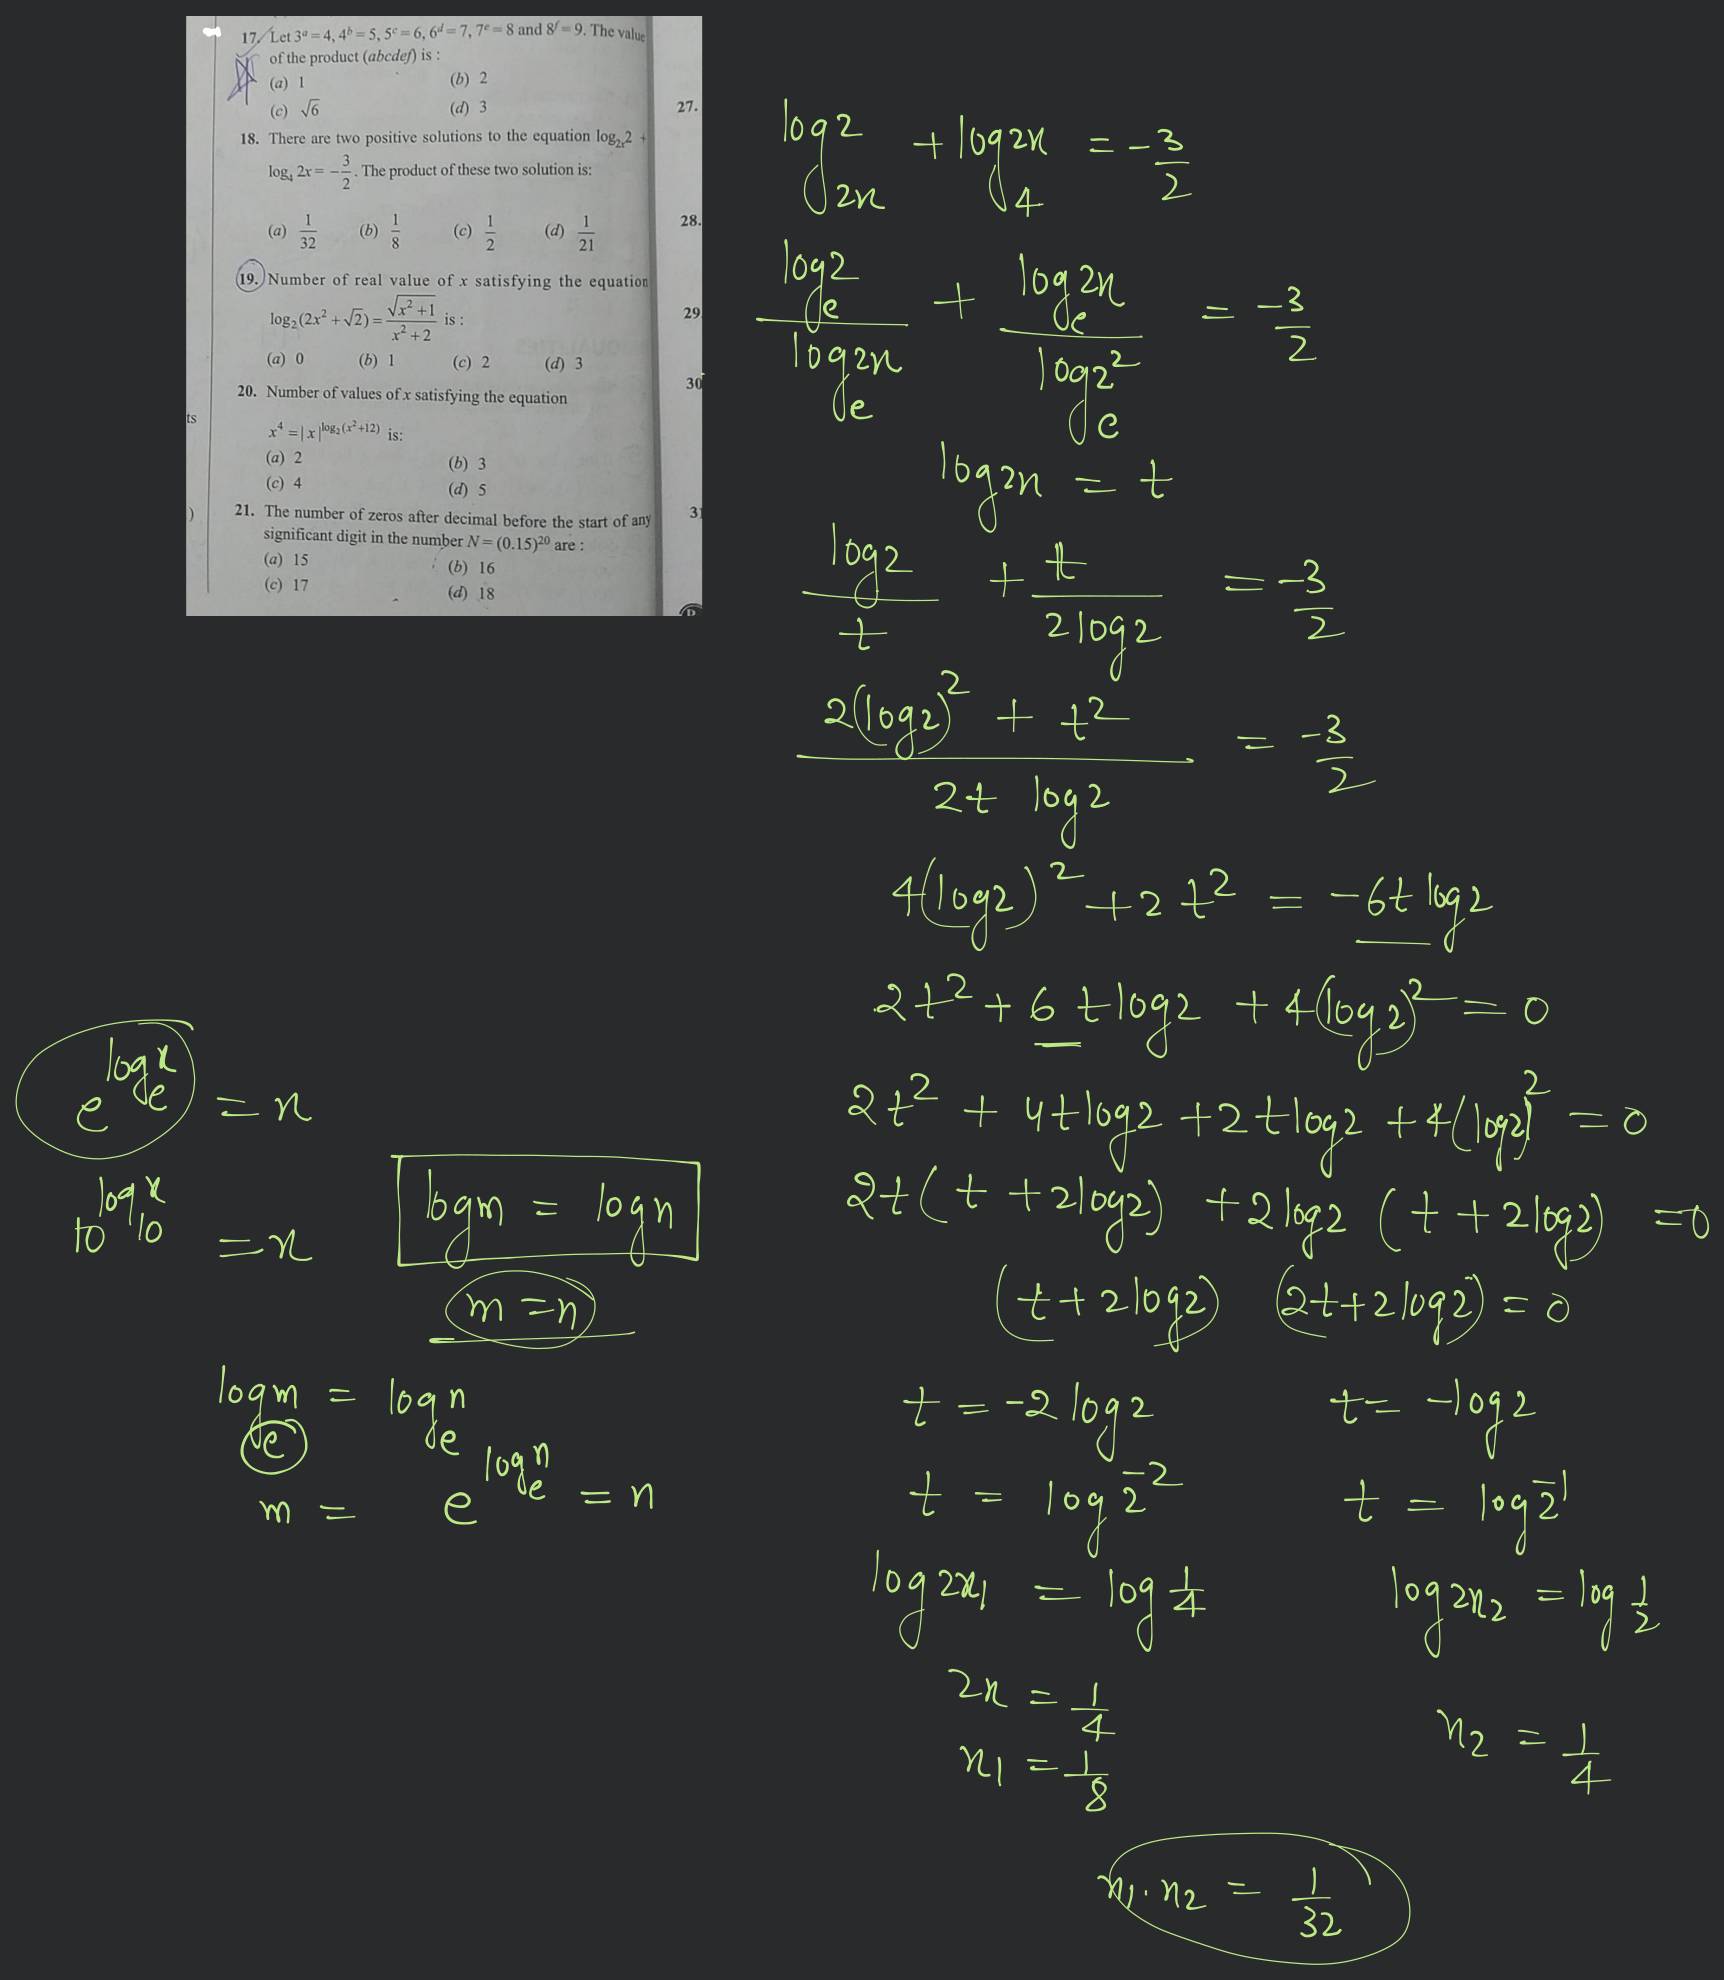 17. Let 3ᵃ = 4, 4ᵇ = 5, 5ᶜ = 6, 6ᵈ = 7, 7ᵉ = 8 and 8ᶠ = 9. The value
of the product (abcdef) is :
(a) 1 (b) 2
(c) √6 (d) 3
18. There are two positive solutions to the equation log₂ₓ2 +
log₄ 2x = -3/2. The product of these two solution is:
(a) 1/32 (b) 1/8 (c) 1/2 (d) 1/21
19. Number of real value of x satisfying the equation
log₂(2x² + √2) = √(x² + 1)/(x² + 2) is :
(a) 0 (b) 1 (c) 2 (d) 3
20. Number of values of x satisfying the equation
x⁴ = |x|^log₂(x²+12) is:
(a) 2 (b) 3
(c) 4 (d) 5
21. The number of zeros after decimal before the start of any
significant digit in the number N = (0.15)²⁰ are :
(a) 15 (b) 16
(c) 17 (d) 18
27.
28.
29
30
31
ts
)
log_{2x} 2 + log_4 2x = -3/2
log_e 2 / log_e 2x + log_e 2x / log_e 2² = -3/2
log 2x = t
log2/t + t/2log2 = -3/2
(2(log2)² + t²)/(2t log2) = -3/2
4(log2)² + 2t² = -6t log2
2t² + 6 t log2 + 4(log2)² = 0
2t² + 4t log2 + 2t log2 + 4(log2)² = 0
2t(t + 2log2) + 2log2 (t + 2log2) = 0
(t + 2log2) (2t + 2log2) = 0
t = -2log2 t = -log2
t = log 2⁻² t = log 2⁻¹
log 2x₁ = log 1/4 log 2x₂ = log 1/2
2x = 1/4
x₁ = 1/8 x₂ = 1/4
x₁.x₂ = 1/32
e^{log_e x} = x
10^{log_10 x} = x
log m = log n
m = n
log_e m = log_e n
m = e^{log_e n} = n